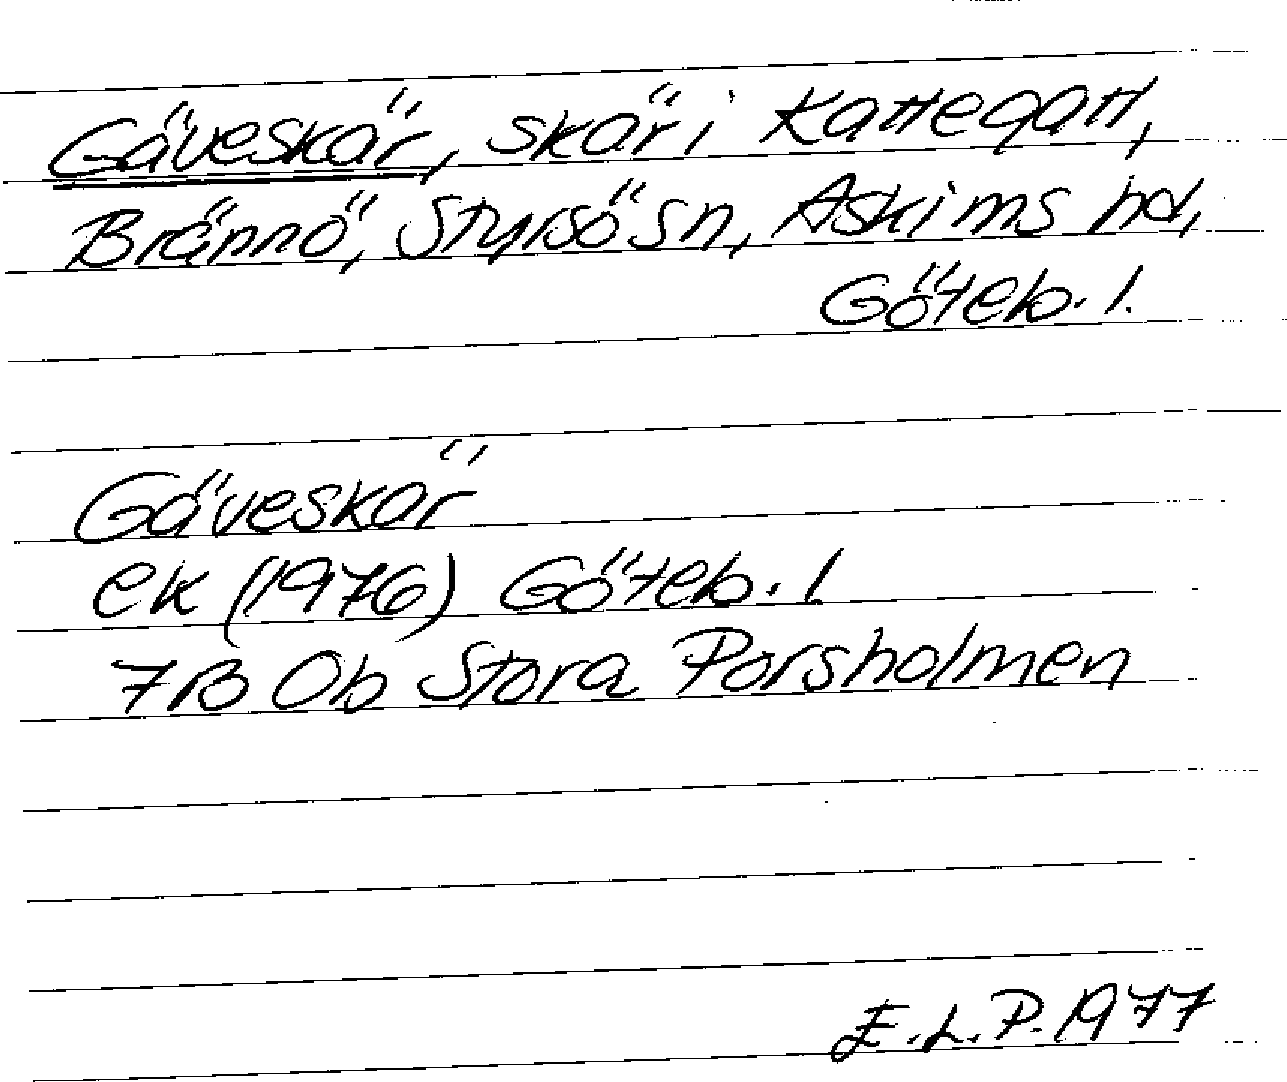 Gäveskär, skär i Kattegatt,
Brännö, Styrsö sn, Askims hd,
Göteb. l.
Gäveskär
ek (1976) Göteb. l
7B 0b Stora Porsholmen
E.L.P. 1977